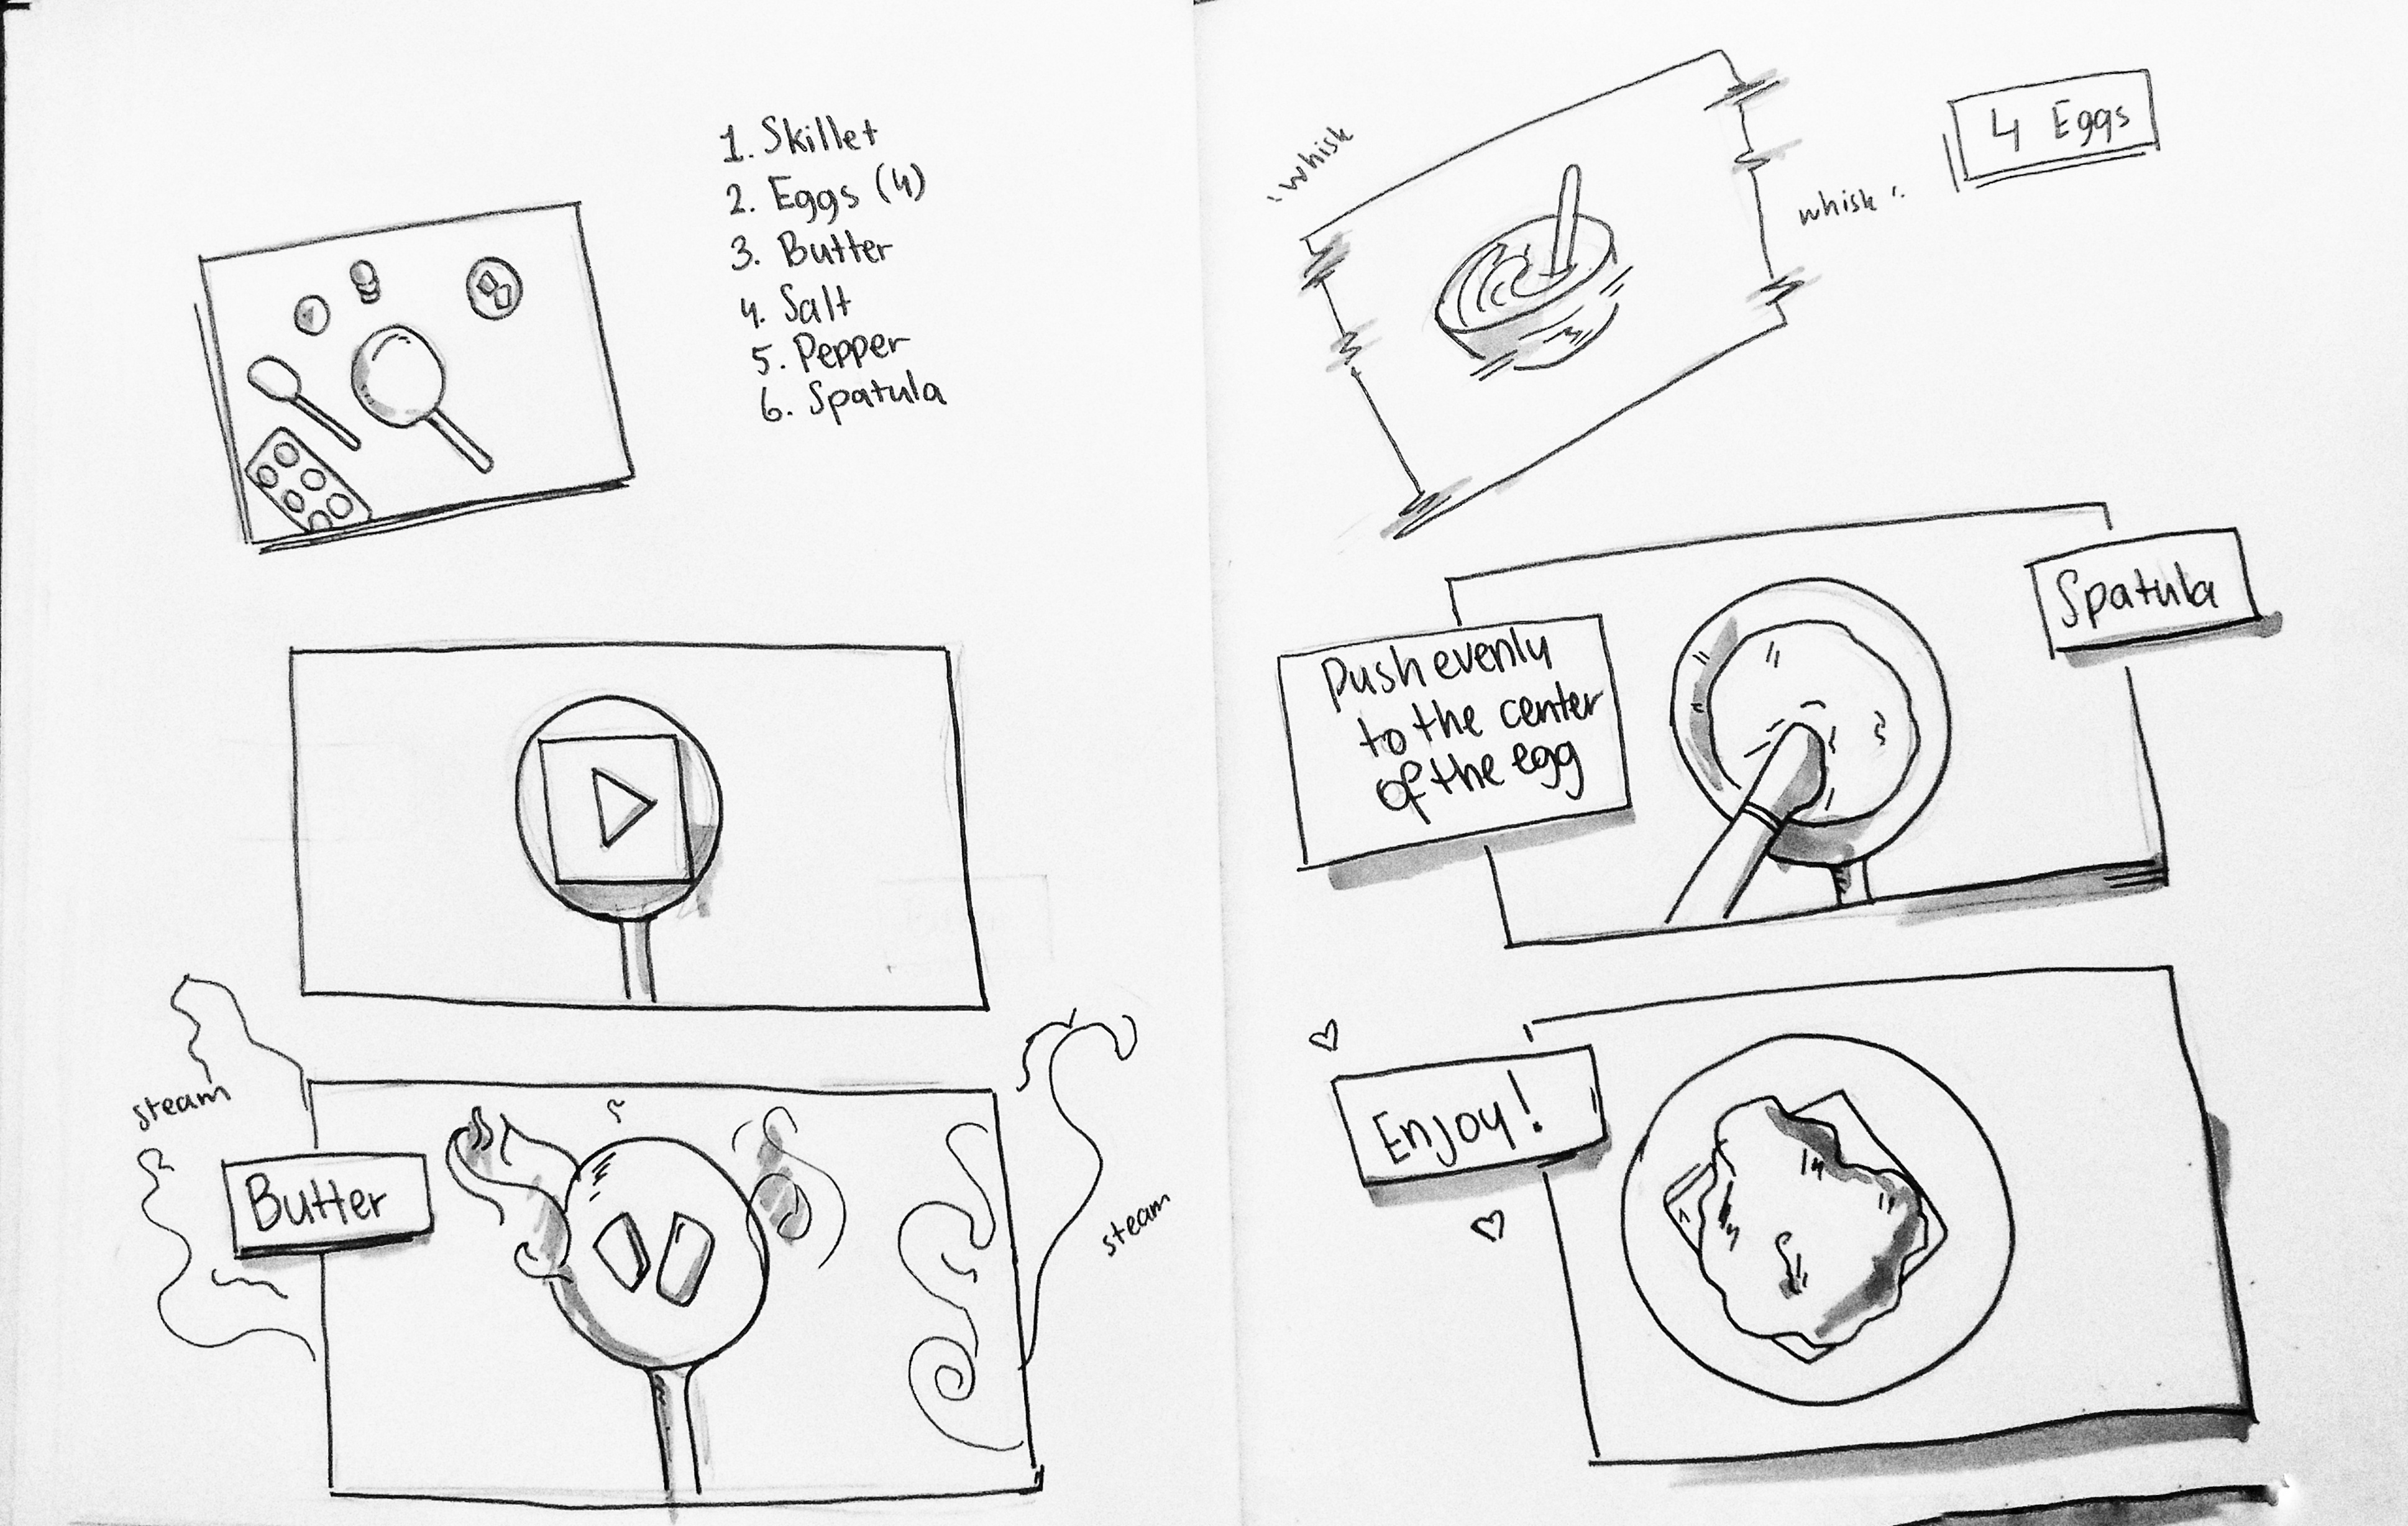 1. Skillet
2. Eggs (4)
3. Butter
4. Salt
5. Pepper
6. Spatula
steam
Butter
steam
whisk
whisk
4 Eggs
Push evenly
to the center
of the egg
Spatula
Enjoy!